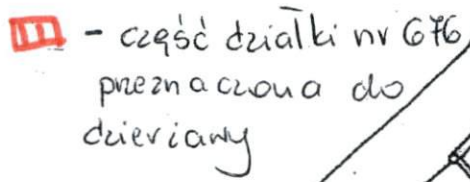 - część działki nr 676
przeznaczona do
dzierżawy